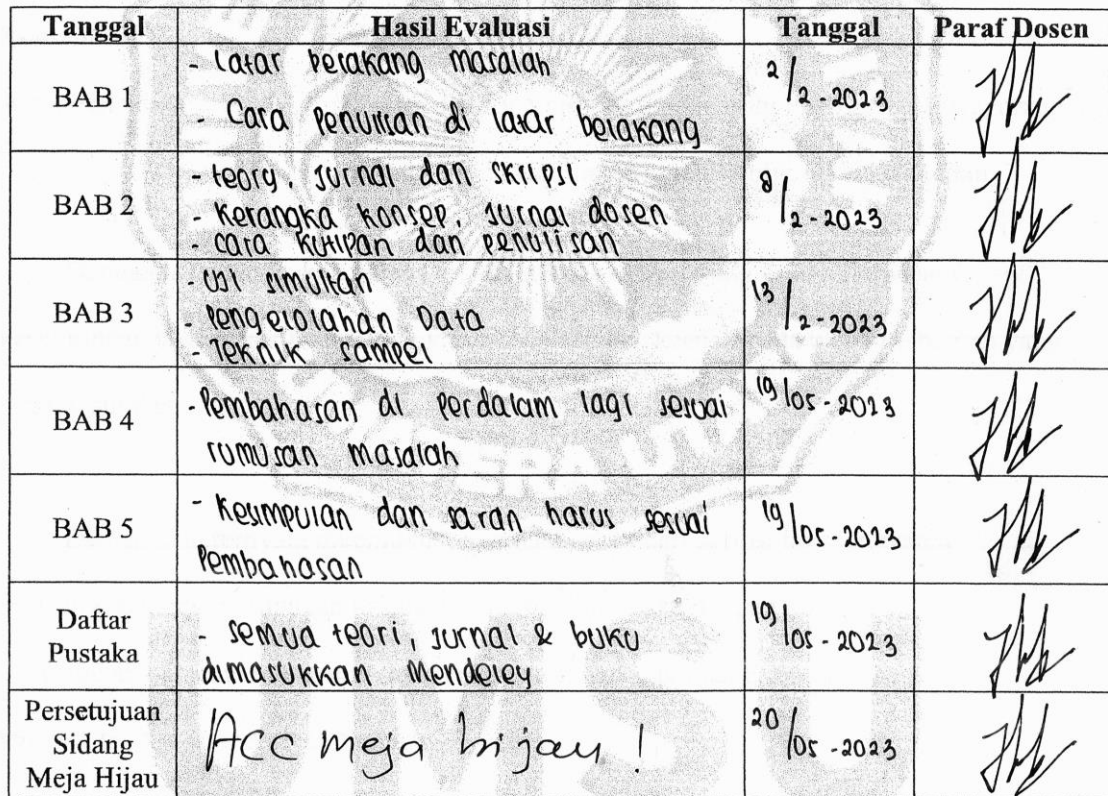 Tanggal Hasil Evaluasi Tanggal Paraf Dosen
BAB 1
- Latar belakang masalah
- Cara penulisan di latar belakang
2/2-2023
BAB 2
- teory, jurnal dan skripsi
- Kerangka konsep, jurnal dosen
- cara kutipan dan penulisan
8/2-2023
BAB 3
- Uji simultan
- Pengelolahan Data
- Teknik sampel
13/2-2023
BAB 4
- Pembahasan di perdalam lagi sesuai
rumusan masalah
19/05-2023
BAB 5
- Kesimpulan dan saran harus sesuai
Pembahasan
19/05-2023
Daftar
Pustaka
- semua teori, jurnal & buku
dimasukkan Mendeley
19/05-2023
Persetujuan
Sidang
Meja Hijau
Acc meja hijau!
20/05-2023
UMSU